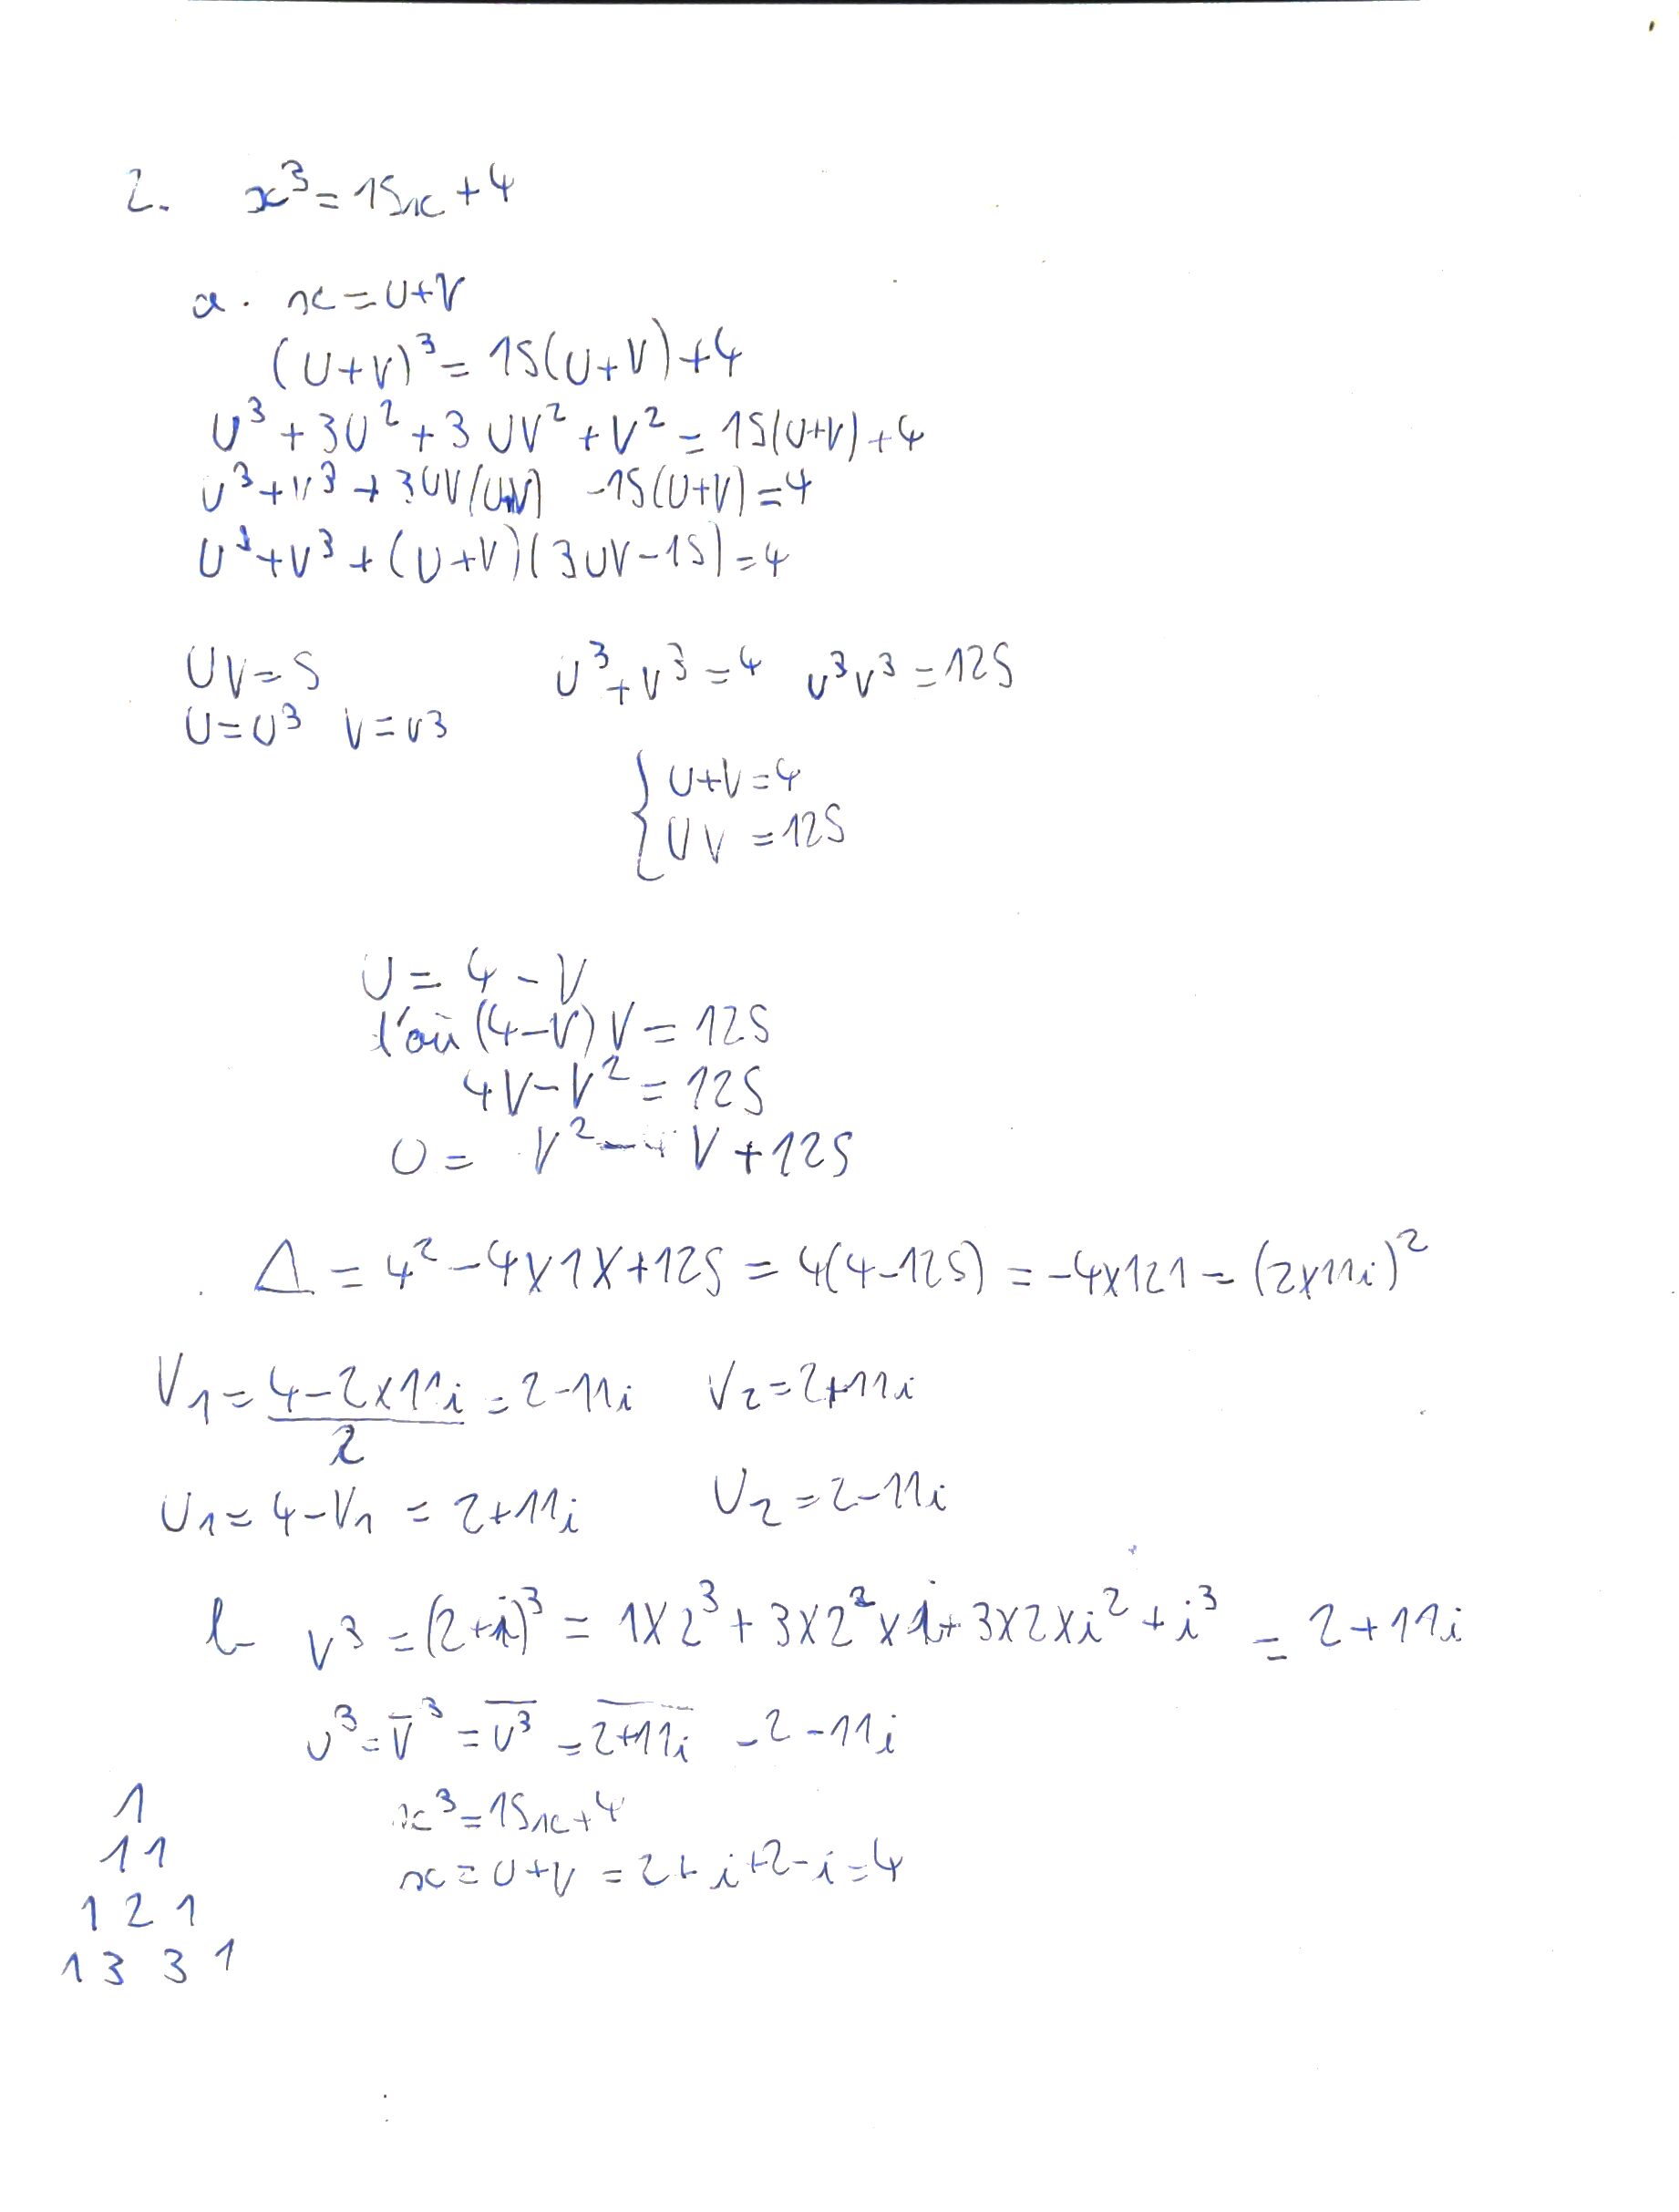 2. x³ = 15x + 4
a. x = U+V
(U+V)³ = 15(U+V)+4
U³ + 3U² + 3UV² + V² = 15(U+V)+4
U³ + V³ + 3UV(U+V) - 15(U+V) = 4
U³ + V³ + (U+V)(3UV - 15) = 4
UV = 5 U³ + V³ = 4 U³V³ = 125
U = U³ V = V³
{ U+V = 4
UV = 125
U = 4 - V
d'où (4-V)V = 125
4V - V² = 125
0 = V² - 4V + 125
Δ = 4² - 4×1×+125 = 4(4-125) = -4×121 = (2×11i)²
V₁ = (4-2×11i)/2 = 2-11i V₂ = 2+11i
U₁ = 4-V₁ = 2+11i U₂ = 2-11i
b V³ = (2+i)³ = 1×2³ + 3×2²×i + 3×2×i² + i³ = 2+11i
U³ = V̅³ = \overline{V³} = \overline{2+11i} = 2-11i
1 x³ = 15x + 4
1 1 x = U+V = 2+i+2-i = 4
1 2 1
1 3 3 1